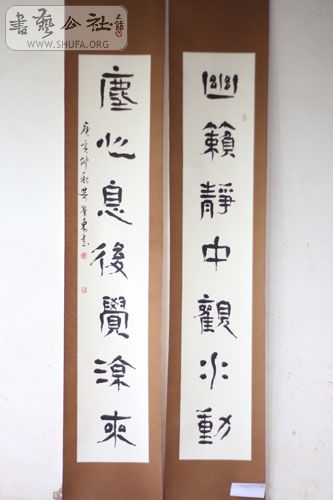 書藝公社
WWW.SHUFA.ORG
幽籟靜中觀水動
塵心息後覺涼來
庚寅仲秋